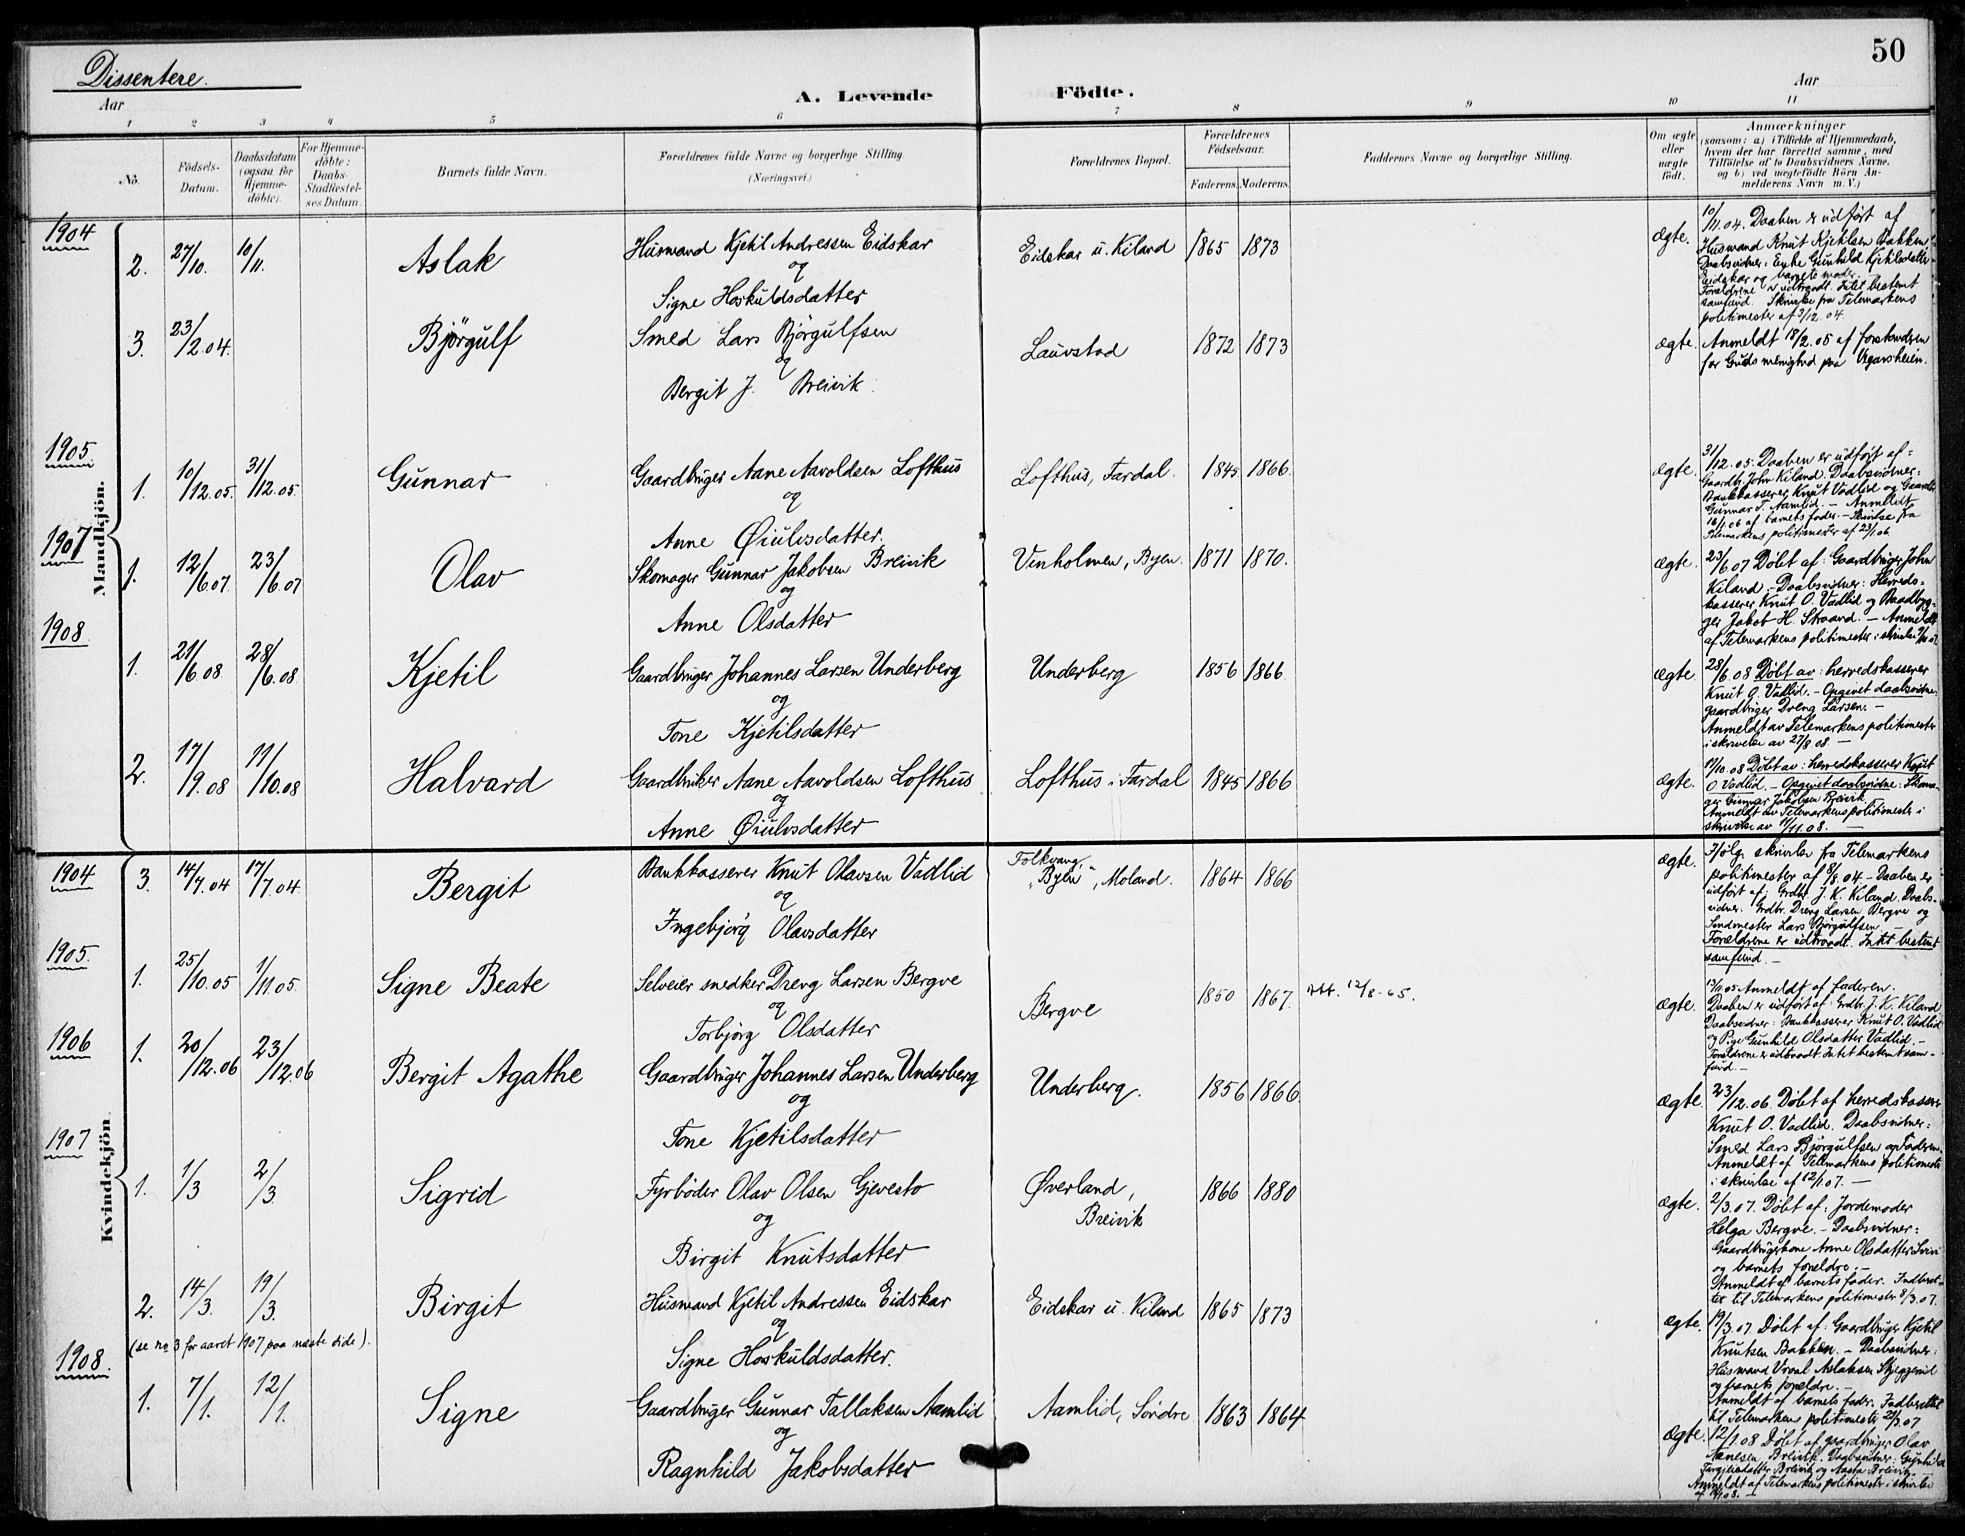 50
Dissentere.
Aar
A. Levende Födte.
Aar
1 2 3 4 5 6 7 8 9 10 11
No.
Födsels-Datum.
Daabsdatum (ogsaa for Hjemme-döbte).
For Hjemme-döbte: Daabs-Stadfæstel-ses Datum.
Barnets fulde Navn.
Forældrenes fulde Navne og borgerlige Stilling (Næringsvei.)
Forældrenes Bopæl.
Forældrenes Födselsaar.
Faderens. Moderens.
Faddernes Navne og borgerlige Stilling.
Om ægte eller uægte födt.
Anmærkninger
(saasom: a) i Tilfælde af Hjemmedaab, hvem der har forrettet samme, med Tilföielse af to Daabsvidners Navne. og b) ved uægtefödte Börn An-melderens Navn m. V.)
Mandkjön.
1904
2. 27/10. 10/11. Aslak
Husmand Kjetil Andressen Eidskar
og
Signe Hoskuldsdatter
Eidskar u. Kiland 1865 1873 ægte.
10/11.04. Daaben er udført af
Husmand Knut Kjetilsen Bakken
Daabsvidner: Enke Gunhild Kjetilsdatter
Eidskar og barnets moder.
Forældrene er udtraadt. Intet bestemt
samfund. Skrivelse fra Telemarkens
politimester af 3/12.04.
3. 23/2.04. Bjørgulf
Smed Lars Bjørgulfsen
og
Bergit J. Breivik.
Lauvstad 1872 1873 ægte.
Anmeldt 18/2.05 af forstanderen
for Guds menighed paa Vegarsheien.
1905
1. 10/12.05. 31/12.05. Gunnar
Gaardbruger Aane Aavoldsen Lofthus
og
Anne Øiulvsdatter.
Lofthus, Tardal. 1845 1866. ægte.
31/12.05. Daaben er udført af:
Gaardbr. John Kiland. Daabsvidner:
Bankkasserer Knut Vadlid og Gaardbr.
Gunnar T. Aamlid. – Anmeldt
16/1.06 af barnets fader. – Skrivelse fra
Telemarkens politimester af 23/1.06.
1907
1. 12/6.07. 23/6.07 Olav
Skomager Gunnar Jakobsen Breivik
og
Anne Olsdatter
Vinholmen, Byen. 1871 1870. ægte.
23/6.07 Døbt af: Gaardbruger John
Kiland. – Daabsvidner: Herreds-
kasserer Knut O. Vadlid og Baadbyg-
ger Jakob H. Straand. – Anmeldt
af Telemarkens politimester i skrivelse
1908.
1. 21/6.08 28/6.08 Kjetil
Gaardbruger Johannes Larsen Underberg
og
Tone Kjetilsdatter
Underberg 1856 1866. ægte.
28/6.08 Døbt av: herredskasserer
Knut O. Vadlid. – Opgivet daabsvidne:
gaardbruger Dreng Larsen. –
Anmeldt av Telemarkens politimester
i skrivelse av 27/8.08. –
2. 17/9.08 11/10.08 Halvard
Gaardbruker Aane Aavoldsen Lofthus
og
Anne Øiulvsdatter
Lofthus i Tardal 1845 1866 ægte.
11/10.08 Døbt av: herredskasserer Knut
O. Vadlid. – Opgivet daabsvidne: Skoma-
ger Gunnar Jakobsen Breivik.
Anmeldt av Telemarkens politimester i
skrivelse av 17/11.08. –
Kvindekjön
1904
3. 14/7.04 17/7.04. Bergit
Bankkasserer Knut Olavsen Vadlid
og
Ingebjørg Olavsdatter
Folkvang,
"Byen", Moland. 1864 1866 ægte.
Ifølg. skrivelse fra Telemarkens
politimester af 8/8.04. – Daaben er
udført af: Grdbr. J. K. Kiland. Daabs-
vidner: Grdbr. Dreng Larsen Bergve og
Smedmester Lars Bjørgulfsen –
Forældrene er udtraadt. Intet bestemt
samfund. –
1905.
1. 25/10.05 1/11.05. Signe Beate
Selveier snedker Dreng Larsen Bergve
og
Torbjørg Olsdatter
Bergve 1850 1867. 12/8-65. ægte.
Anmeldt af faderen.
Daaben er udført af: Grdbr. J. K. Kiland
Daabsvidner: Bankkasserer Knut O. Vadlid
og Pige Gunhild Olsdatter Vadlid. –
Forældrene er udtraadt. Intet bestemt sam-
fund. –
1906
1. 20/12.06 23/12.06 Bergit Agathe
Gaardbruger Johannes Larsen Underberg
og
Tone Kjetilsdatter
Underberg. 1856 1866. ægte.
23/12.06. Døbt af herredskasserer
Knut O. Vadlid. Daabsvidner:
Smed Lars Bjørgulfsen og Faderen.
Anmeldt af Telemarkens politimester
i skrivelse af 12/1.07. –
1907
1. 1/3 2/3 Sigrid
Fyrbøder Olav Olsen Gjevesto
og
Birgit Knutsdatter
Øverland,
Breivik 1866 1880 ægte.
2/3.07. Døbt af: Jordemoder
Helga Bergve. – Daabsvidner:
Gaardbrugerkone Anne Olsdatter
og barnets forældre. –
Anmeldt af barnets fader. Indberet-
tet til Telemarkens politimester 8/3.07.
2. 14/3. 19/3. Birgit
Husmand Kjetil Andressen Eidskar
og
Signe Hoskuldsdatter.
Eidskar u. Kiland 1865 1873 ægte.
19/3.07. Døbt af: Gaardbruger Kjetil
Knutsen Bakken. – Daabsvidner:
Husmand Vraal Aslaksen
og barnets forældre. –
Anmeldt af barnets fader. Indberettet
til Telemarkens politimester 29/3.07
(se no 3 for aaret 1907 paa næste side).
1908.
1. 7/1. 12/1. Signe
Gaardbruger Gunnar Tallaksen Aamlid
og
Ragnhild Jakobsdatter
Aamlid, Søndre 1863 1864 ægte.
12/1.08 Døbt af gaardbruger Olav
Aanesen Breivik. Daabsvidner: Gunhild
Breivik og Aasta Breivik.
Anmeldt af Telemarkens politimester i skrivelse